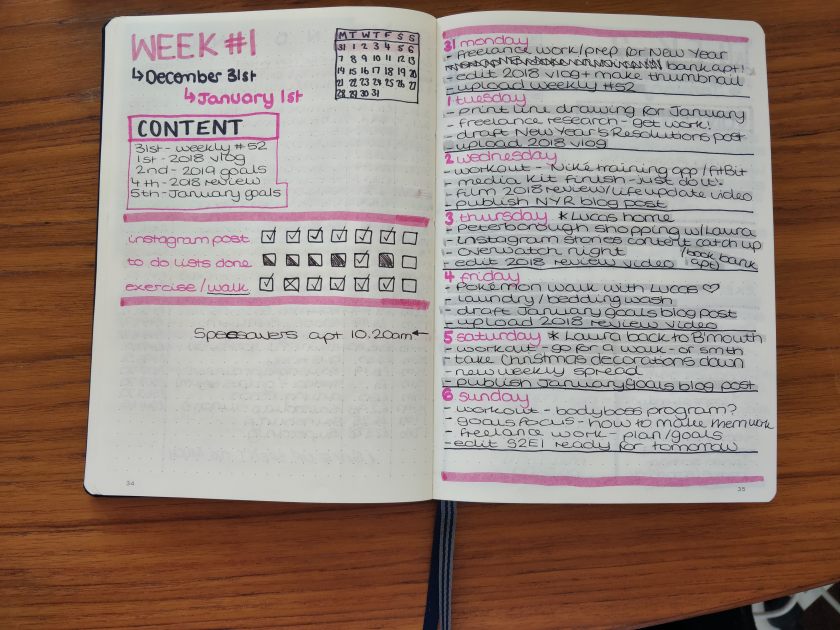 WEEK #1
↳December 31st
↳January 1st
M T W T F S S
31 1 2 3 4 5 6
7 8 9 10 11 12 13
14 15 16 17 18 19 20
21 22 23 24 25 26 27
28 29 30 31
CONTENT
31st - weekly #52
1st - 2018 vlog
2nd - 2019 goals
4th - 2018 review
5th - January goals
instagram post
to do lists done
exercise/walk
Specsavers apt 10.20am←
34
31 monday
- freelance work/prep for New Year
bank apt!
- edit 2018 vlog + make thumbnail
- upload weekly #52
1 tuesday
- print line drawing for January
- freelance research - get work!
- draft New Year's Resolutions post
- upload 2018 vlog
2 wednesday
- workout - Nike training app/fitBit
- media kit finish - just do it -
- film 2018 review/life update video
- publish NYR blog post
3 thursday * Lucas home
- Peterborough shopping w/Laura
- instagram stories content catch up
- overwatch night
- edit 2018 review video (book bank apt)
4 friday
- Pokémon walk with Lucas ♡
- laundry/bedding wash
- draft January goals blog post
- upload 2018 review video
5 saturday * Laura back to B'mouth
- workout - go for a walk - or smth
- take Christmas decorations down
- new weekly spread
- publish January goals blog post
6 sunday
- workout - bodyboss program?
- goals focus - how to make them work
- freelance work - plan/goals
- edit S2E1 ready for tomorrow
35